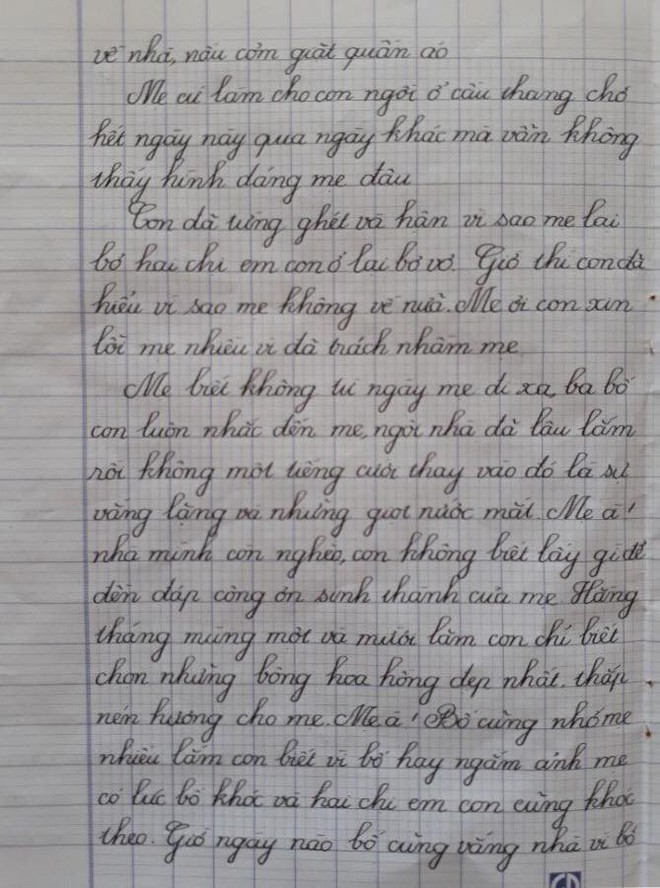 về nhà, nấu cơm giặt quần áo
Mẹ cứ làm cho con ngồi ở cầu thang chờ
hết ngày này qua ngày khác mà vẫn không
thấy hình dáng mẹ đâu
Con đã từng ghét và hận vì sao mẹ lại
bỏ hai chị em con ở lại bơ vơ. Giờ thì con đã
hiểu vì sao mẹ không về nữa. Mẹ ơi con xin
lỗi mẹ nhiều vì đã trách nhầm mẹ
Mẹ biết không từ ngày mẹ đi xa, ba bố
con luôn nhắc đến mẹ, ngôi nhà đã lâu lắm
rồi không một tiếng cười thay vào đó là sự
vắng lặng và những giọt nước mắt. Mẹ à!
nhà mình còn nghèo, con không biết lấy gì để
đền đáp công ơn sinh thành của mẹ. Hằng
tháng mùng một và mười lăm con chỉ biết
chọn những bông hoa hồng đẹp nhất. thắp
nén hương cho mẹ. Mẹ à! Bố cũng nhớ mẹ
nhiều lắm con biết vì bố hay ngắm ảnh mẹ
có lúc bố khóc và hai chị em con cũng khóc
theo. Giờ ngày nào bố cũng vắng nhà vì bố